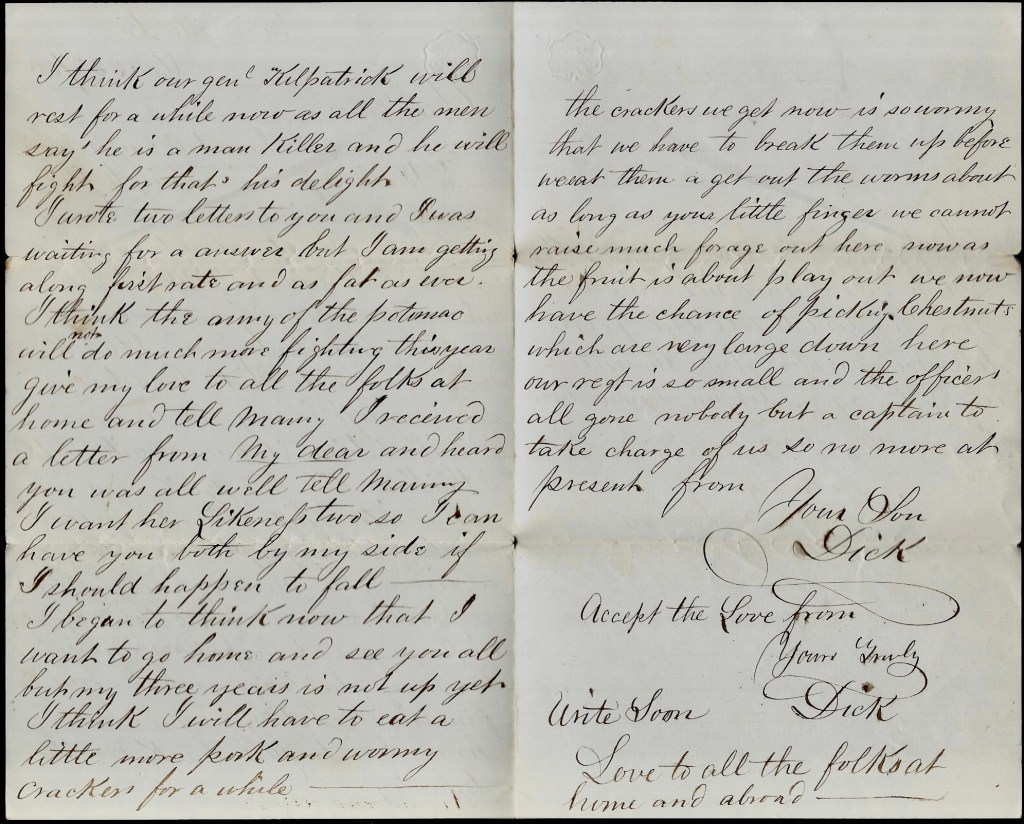 I think our genl Kilpatrick will
rest for a while now as all the men
say he is a man Killer and he will
fight for thats his delight
I wrote two letters to you and I was
waiting for a answer but I am getting
along first rate and as fat as ever.
I think the army of the potomac
not
will do much more fighting this year
give my love to all the folks at
home and tell Mamy I received
a letter from My dear and heard
you was all well tell Mamy
I want her Likeness two so I can
have you both by my side if
I should happen to fall
I began to think now that I
want to go home and see you all
but my three years is not up yet
I think I will have to eat a
little more pork and wormy
crackers for a while
the crackers we get now is so wormy
that we have to break them up before
we eat them a get out the worms about
as long as your little finger we cannot
raise much forage out here now as
the fruit is about play out we now
have the chance of picking Chestnuts
which are very large down here
our regt is so small and the officers
all gone nobody but a captain to
take charge of us so no more at
present from
Your Son
Dick
Accept the Love from
Yours Truly
Dick
Write Soon
Love to all the folks at
home and abroad